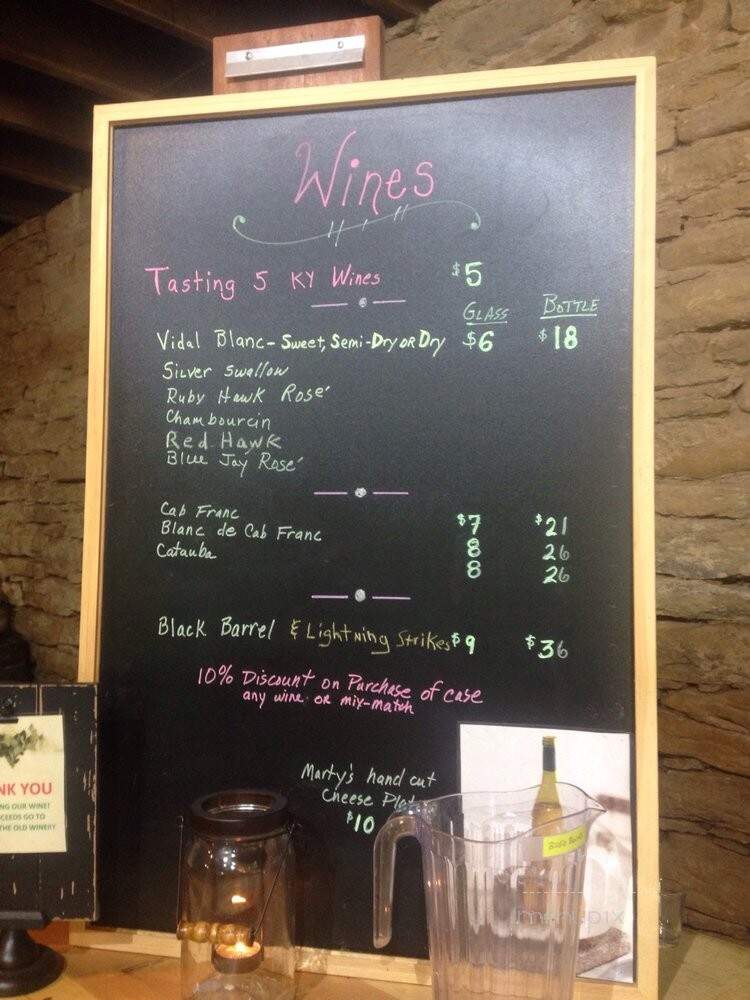 Wines
Tasting 5 KY Wines $5
GLASS BOTTLE
Vidal Blanc - Sweet, Semi-Dry OR Dry $6 $18
Silver Swallow
Ruby Hawk Rosé
Chambourcin
Red Hawk
Blue Jay Rosé
Cab Franc $7 $21
Blanc de Cab Franc 8 26
Catauba 8 26
Black Barrel & Lightning Strikes $9 $36
10% Discount on Purchase of case
any wine or mix-match
Marty's hand cut
Cheese
$10
NK YOU
NG OUR WINE!
CEEDS GO TO
THE OLD WINERY
menupix